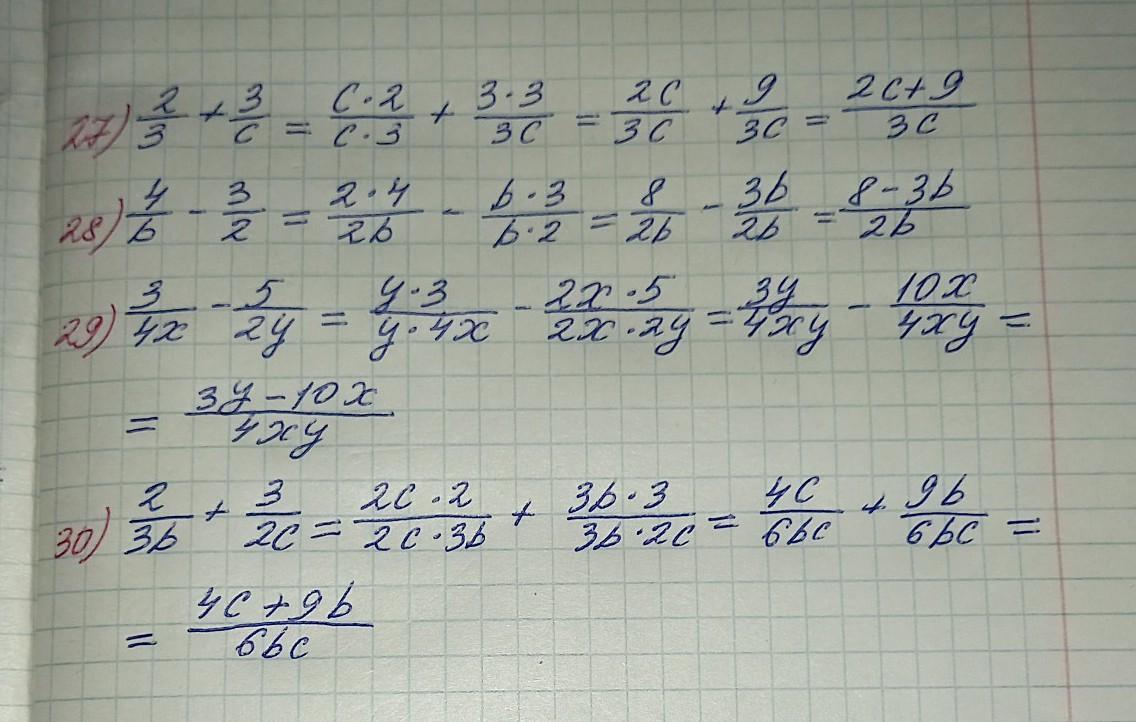 27) 2/3 + 3/c = c·2/c·3 + 3·3/3c = 2c/3c + 9/3c = 2c+9/3c
28) 4/b - 3/2 = 2·4/2b - b·3/b·2 = 8/2b - 3b/2b = 8-3b/2b
29) 3/4x - 5/2y = y·3/y·4x - 2x·5/2x·2y = 3y/4xy - 10x/4xy =
= 3y-10x/4xy
30) 2/3b + 3/2c = 2c·2/2c·3b + 3b·3/3b·2c = 4c/6bc + 9b/6bc =
= 4c+9b/6bc